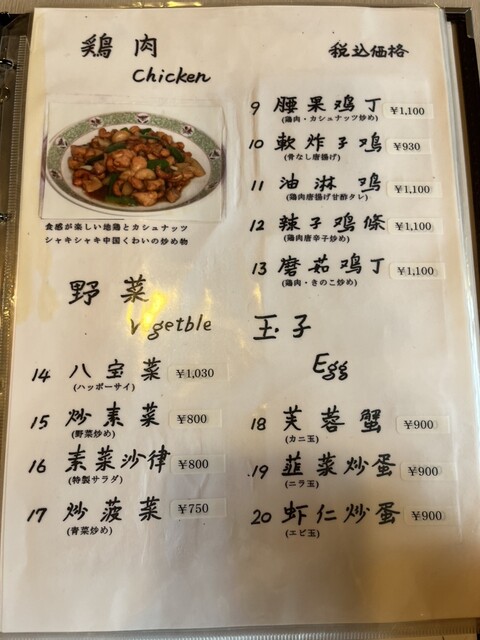 鶏肉
Chicken
税込価格
食感が楽しい地鶏とカシュナッツ
シャキシャキ中国くわいの炒め物
9 腰果鸡丁 ¥1,100
(鶏肉・カシュナッツ炒め)
10 軟炸子鸡 ¥930
(骨なし唐揚げ)
11 油淋鸡 ¥1,100
(鶏肉唐揚げ甘酢タレ)
12 辣子鸡條 ¥1,100
(鶏肉唐辛子炒め)
13 磨茹鸡丁 ¥1,100
(鶏肉・きのこ炒め)
野菜
Vegetble
14 八宝菜 ¥1,030
(ハッポーサイ)
15 炒素菜 ¥800
(野菜炒め)
16 素菜沙律 ¥800
(特製サラダ)
17 炒菠菜 ¥750
(青菜炒め)
玉子
Egg
18 芙蓉蟹 ¥900
(カニ玉)
19 韮菜炒蛋 ¥900
(ニラ玉)
20 虾仁炒蛋 ¥900
(エビ玉)